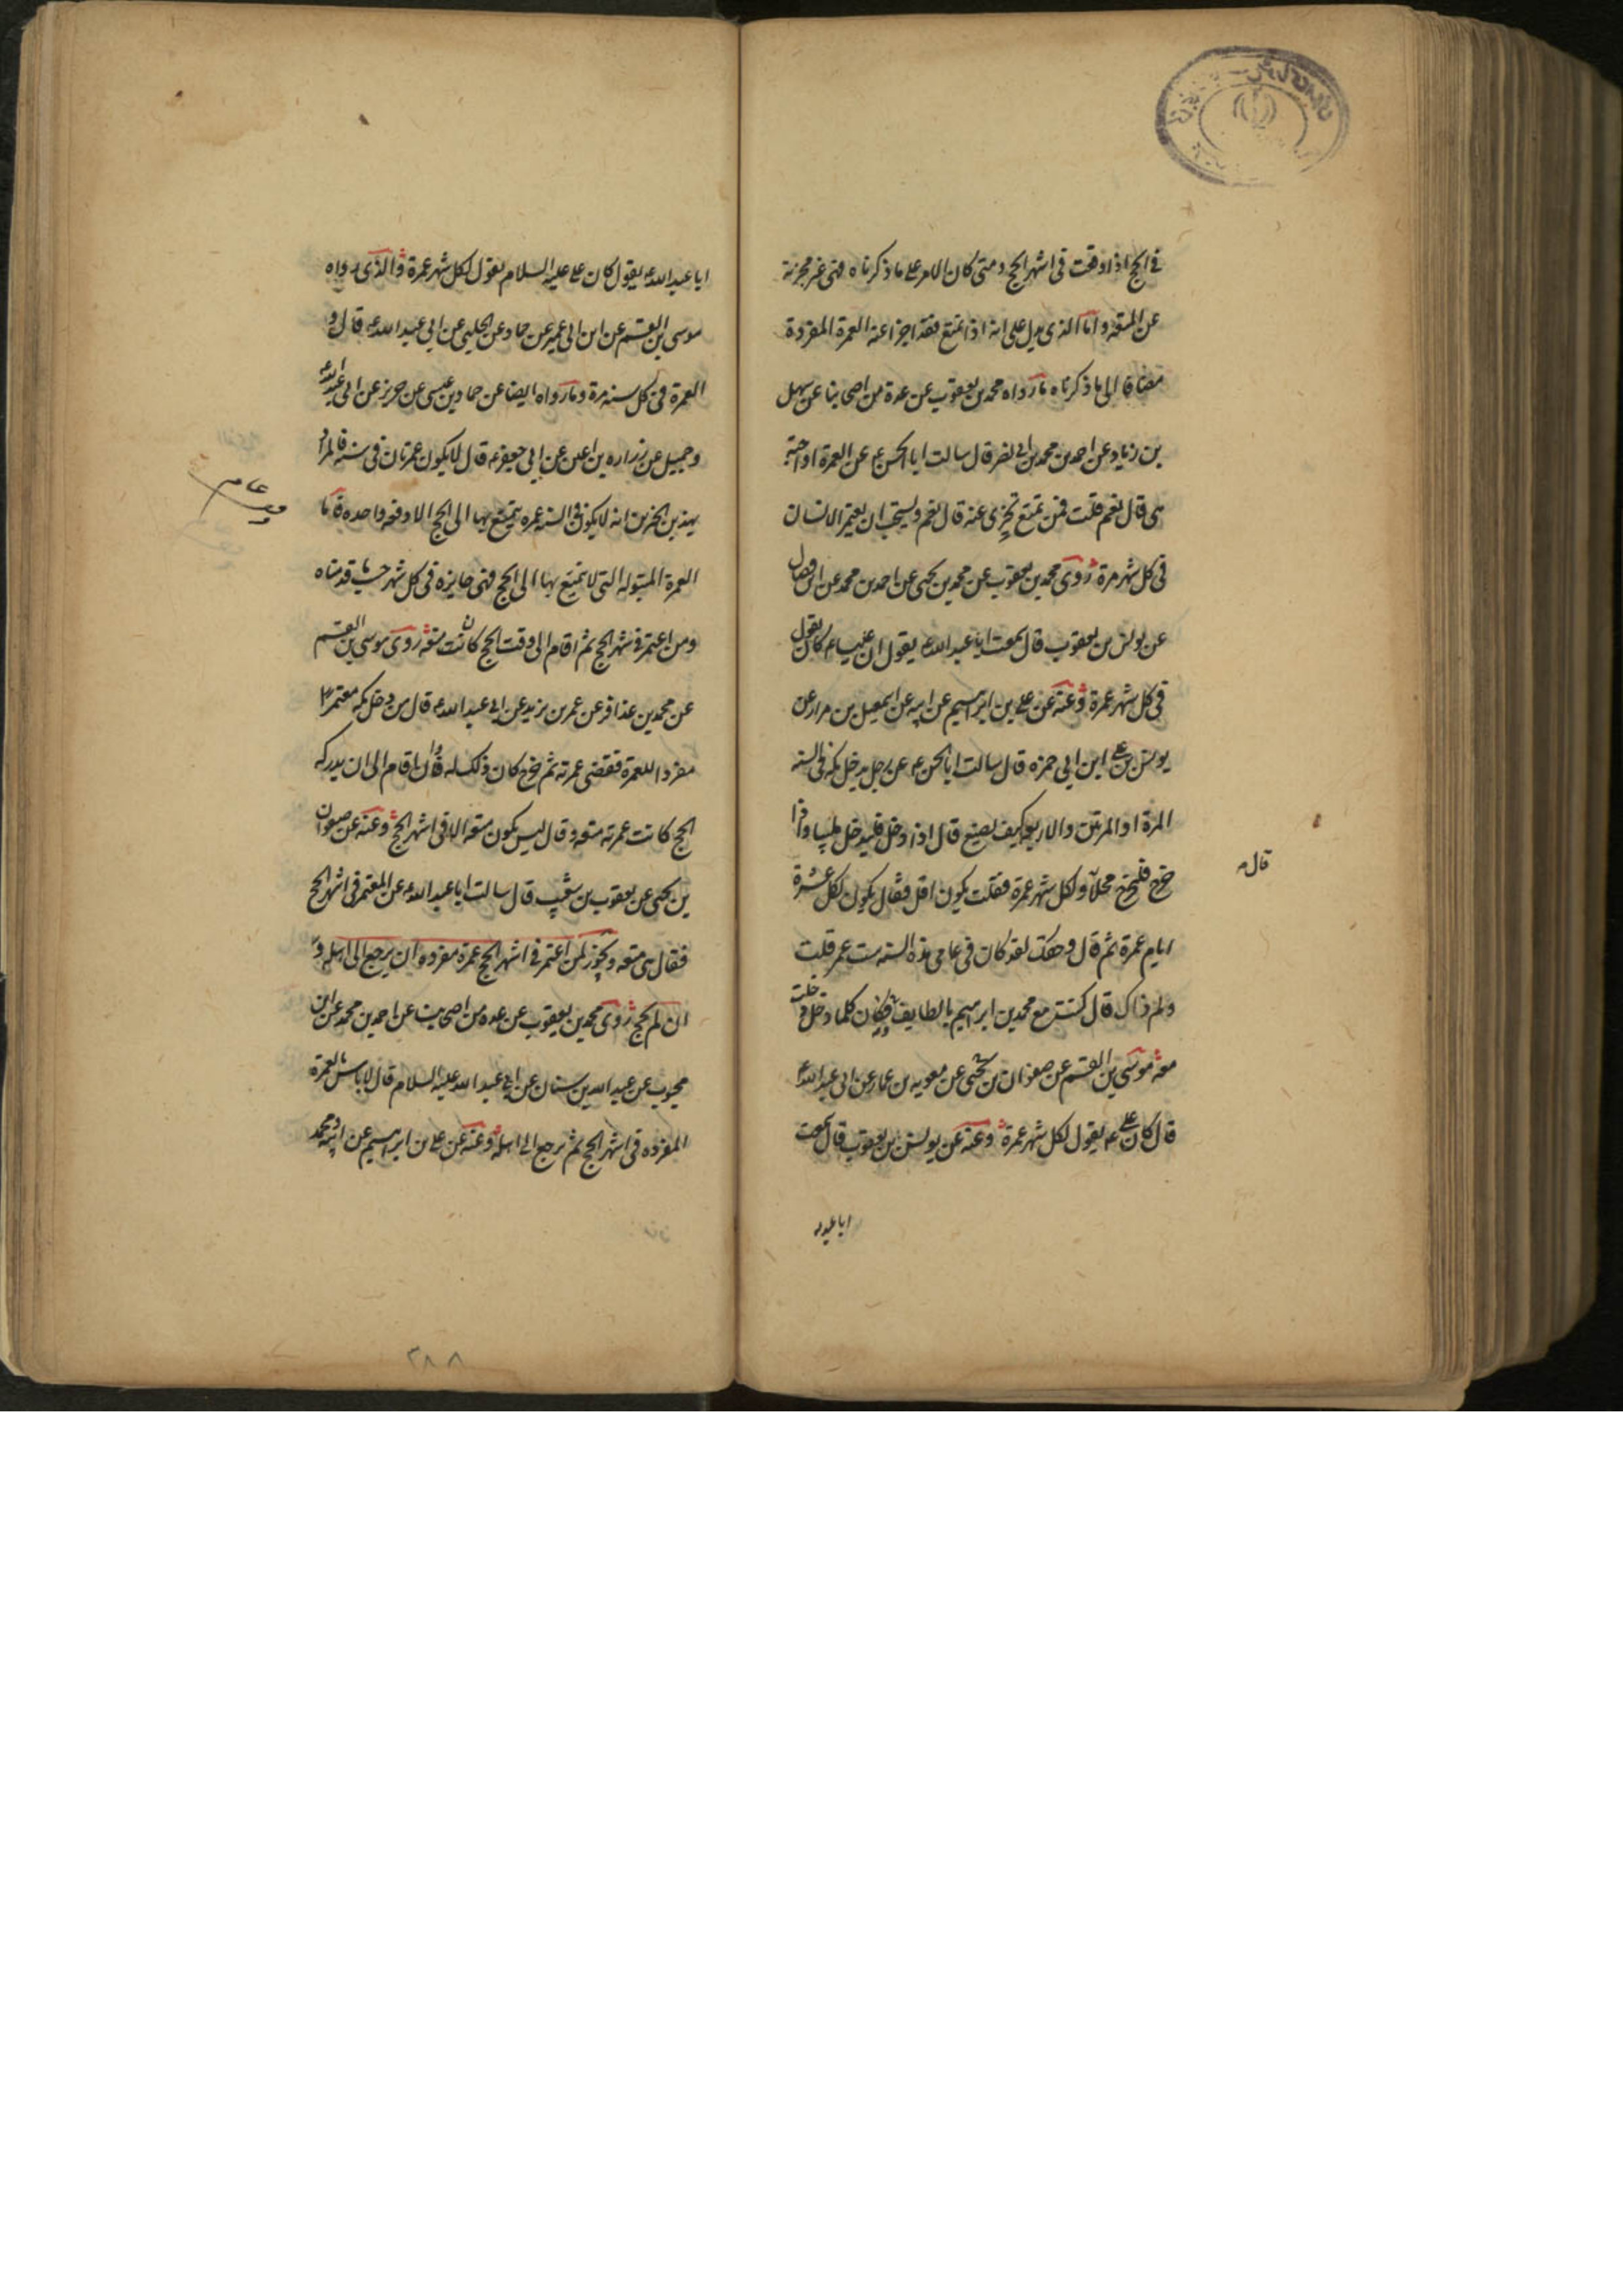 في الحج اذا وقعت في اشهر الحج ومتى كان الامر على ما ذكرناه فهي غير مجزية
عن المتعة واما الذي يدل على انه اذا تمتع فقد اجزا عنه العمرة المفردة
مضافا الى ما ذكرناه ما رواه محمد بن يعقوب عن عدة من اصحابنا عن سهل
بن زياد عن احمد بن محمد بن ابي نصر قال سالت ابا الحسن ع عن العمرة اواجبة
هي قال نعم قلت فمن تمتع تجزي عنه قال نعم ويستحب ان يعتمر الانسان
في كل شهر مرة روى محمد بن يعقوب عن محمد بن يحيى عن احمد بن محمد عن ابن فضال
عن يونس بن يعقوب قال سمعت ابا عبد الله ع يقول ان عليا ع كان يقول
في كل شهر عمرة وعنه عن علي بن ابراهيم عن ابيه عن اسمعيل بن مرار عن
يونس عن علي ابن ابي حمزه قال سالت ابا الحسن ع عن رجل يدخل مكة في السنه
المرة او المرتين والاربعة كيف يصنع قال اذا دخل فليدخل ملبيا واذا
خرج فليخرج محلا ولكل شهر عمرة فقلت يكون اقل فقال يكون لكل عشرة
قال
ايام عمرة ثم قال وحقك لقد كان في عامي هذه السنه ست عمر قلت
ولم ذاك قال كنت مع محمد بن ابراهيم بالطايف فكان كلما دخل دخلت
معه موسى بن القسم عن صفوان بن يحيى عن معويه بن عمار عن ابي عبد الله ع
قال كان علي ع يقول لكل شهر عمرة وعنه عن يونس بن يعقوب قال سمعت
ابا عبد
ابا عبد الله ع يقول كان علي عليه السلام يقول لكل شهر عمرة والذي رواه
موسى بن القسم عن ابن ابي عمير عن حماد عن الحلبي عن ابي عبد الله ع قال و
العمرة في كل سنه مرة وما رواه ايضا عن حماد بن عيسى عن حريز عن ابي عبد الله ع
وجميل عن زراره بن اعين عن ابي جعفر ع قال لا يكون عمرتان في سنة فالمراد
بهذين الخبرين انه لا يكون في السنه عمره يتمتع بها الى الحج الا دفعه واحده فاما
العمرة المبتوله التي لا يتمتع بها الى الحج فهي جايزه في كل شهر حسب ما قدمناه
ومن اعتمر في شهر الحج ثم اقام الى وقت الحج كانت متعه روى موسى بن القسم
عن محمد بن عذافر عن عمر بن يزيد عن ابي عبد الله ع قال من دخل مكه معتمرا
مفردا للعمرة فقضى عمرته ثم خرج كان ذلك له وان اقام الى ان يدركه
الحج كانت عمرته متعه وقال ليس يكون متعه الا في اشهر الحج وعنه عن صفوان
بن يحيى عن يعقوب بن شعيب قال سالت ابا عبد الله ع عن المعتمر في اشهر الحج
فقال هي متعه ويجوز لمن اعتمر في اشهر الحج عمرة مفرده ان يرجع الى اهله و
ان لم يحج روى محمد بن يعقوب عن عده من اصحابنا عن احمد بن محمد عن ابن
محبوب عن عبد الله بن سنان عن ابي عبد الله عليه السلام قال لا باس بالعمرة
المفرده في اشهر الحج ثم يرجع الى اهله وعنه عن علي بن ابراهيم عن ابيه ومحمد
٣٨٨